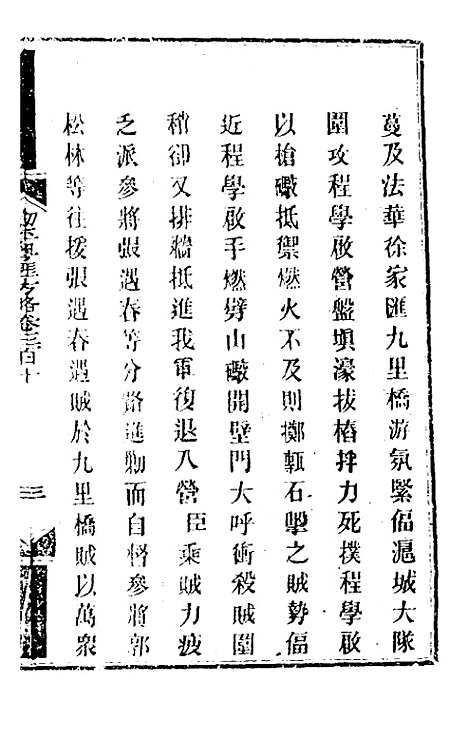 蔓及法華徐家匯九里橋游氛緊偪滬城大隊
圍攻程學啟營盤塡濠拔樁拌力死撲程學啟
以槍礮抵禦燃火不及則擲甎石擊之賊勢偪
近程學啟手燃劈山礮開壁門大呼衝殺賊圍
稍卻又排牆抵進我軍復退入營臣乘賊力疲
乏派參將張遇春等分路進勦而自督參將郭
松林等往援張遇春遇賊於九里橋賊以萬衆
方略卷三百十
三